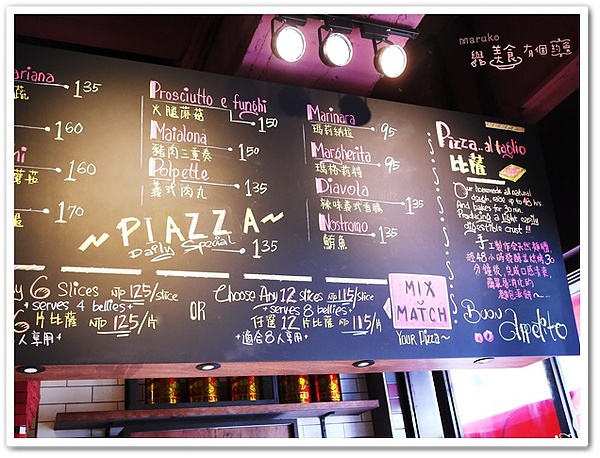 maruko
與美食有個約會
ariana 135
160
160
170
Prosciutto e funghi
火腿蘑菇 150
Maialona
豬肉三重奏 150
Polpette
義式肉丸 135
~ PIAZZA ~
Daily Special 135
Marinara
瑪莉納拉 95
Margherita
瑪格莉特 95
Diavola
辣味義式香腸 135
Nostromo
鮪魚 135
Pizza.. al taglio
比薩
Our homemade all natural
dough, raise up to 48 hrs
And bakes for 30 min.
Producing a light easily
digestible crust !!
手工製作全天然麵糰
經48小時發酵並烘烤30
分鐘後,完成口感清爽,
容易消化的
麵包薄餅~
Buon
Appetito
6 Slices NTD 125/slice
+ serves 4 bellies +
6 片比薩 NTD 125/片
人享用+
OR
Choose Any 12 slices NTD 115/slice
+ serves 8 bellies +
任選 12 片比薩 NTD 115/片
+適合8人享用+
MIX
&
MATCH
Your Pizza~